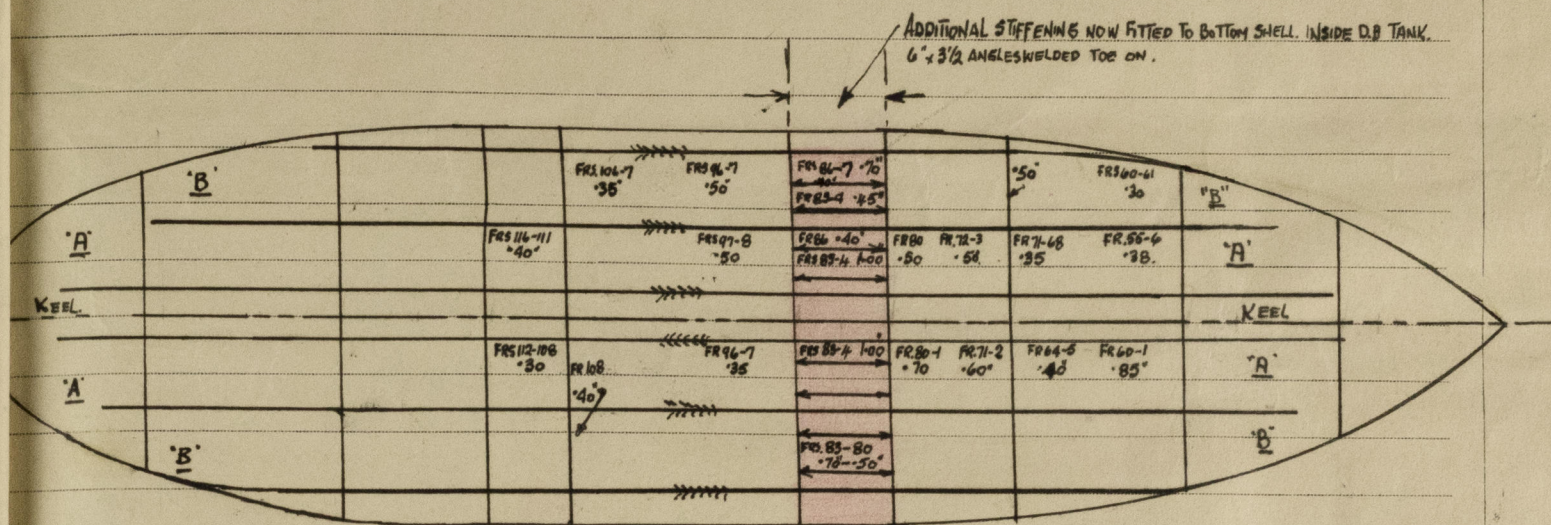 ADDITIONAL STIFFENING NOW FITTED TO BOTTOM SHELL. INSIDE D.B TANK.
6" x 3 1/2 ANGLES WELDED TOE ON.
'B'
FRS.106-7
·35"
FRS 96-7
·50"
FRS 86-7 ·70"
FR 83-4 ·45"
·50"
FRS 60-61
·30
"B"
'A'
FRS 116-111
·40"
FRS 97-8
·50
FR86 ·40"
FRS 83-4 1·00
FR80
·50
FR.72-3
·58
FR 71-68
·35
FR.55-6
·38.
'A'
KEEL.
KEEL
'A'
FRS 112-108
·30
FR 108
·40"
FR 96-7
·35
FRS 83-4 1·00"
FR.80-1
·70
FR.71-2
·60"
FR 64-5
·40"
FR 60-1
·85"
'A'
'B'
FRS. 83-80
·70-·50"
'B'